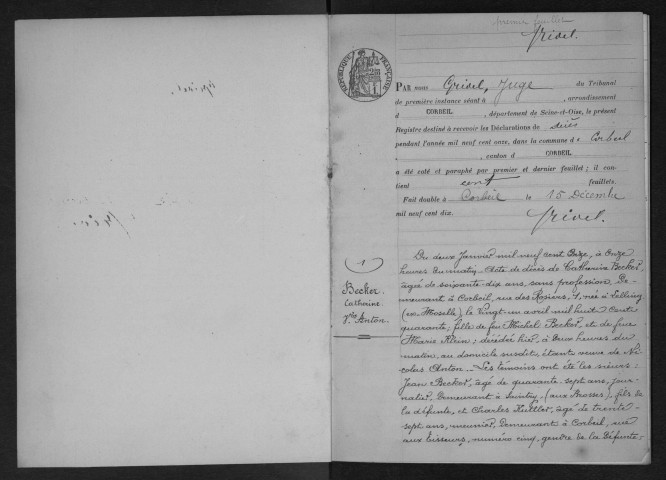 premier feuillet
Gridel.
RÉPUBLIQUE FRANÇAISE
PAR nous Gridel, Juge du Tribunal
de première instance séant à , arrondissement
d CORBEIL , département de Seine-et-Oise, le présent
Registre destiné à recevoir les Déclarations de décès
pendant l'année mil neuf cent onze, dans la commune de Corbeil
, canton d CORBEIL
a été coté et paraphé par premier et dernier feuillet ; il con-
tient cent feuillets.
Fait double à Corbeil le 15 Décembre
mil neuf cent dix. Gridel.
1
Becker
Catherine
Vve Anton
Du deux Janvier mil neuf cent onze, à onze
heures du matin. Acte de décès de Catherine Becker,
âgée de soixante-dix ans, sans profession, de-
meurant à Corbeil, rue des Rosiers, 1, née à
(ex Moselle), le vingt-un avril mil huit cent
quarante; fille de feu Michel Becker, et de feue
Marie Klein; décédée hier, à deux heures du
matin, au domicile susdit, étant veuve de Ni-
colas Anton. Les témoins ont été les sieurs:
Jean Becker, âgé de quarante-sept ans, jour-
nalier, demeurant à Saintry, (aux Brosses), fils de
la défunte, et Charles âgé de trente-
sept ans, meunier, demeurant à Corbeil, rue
aux Tisseurs, numéro cinq, gendre de la défunte;